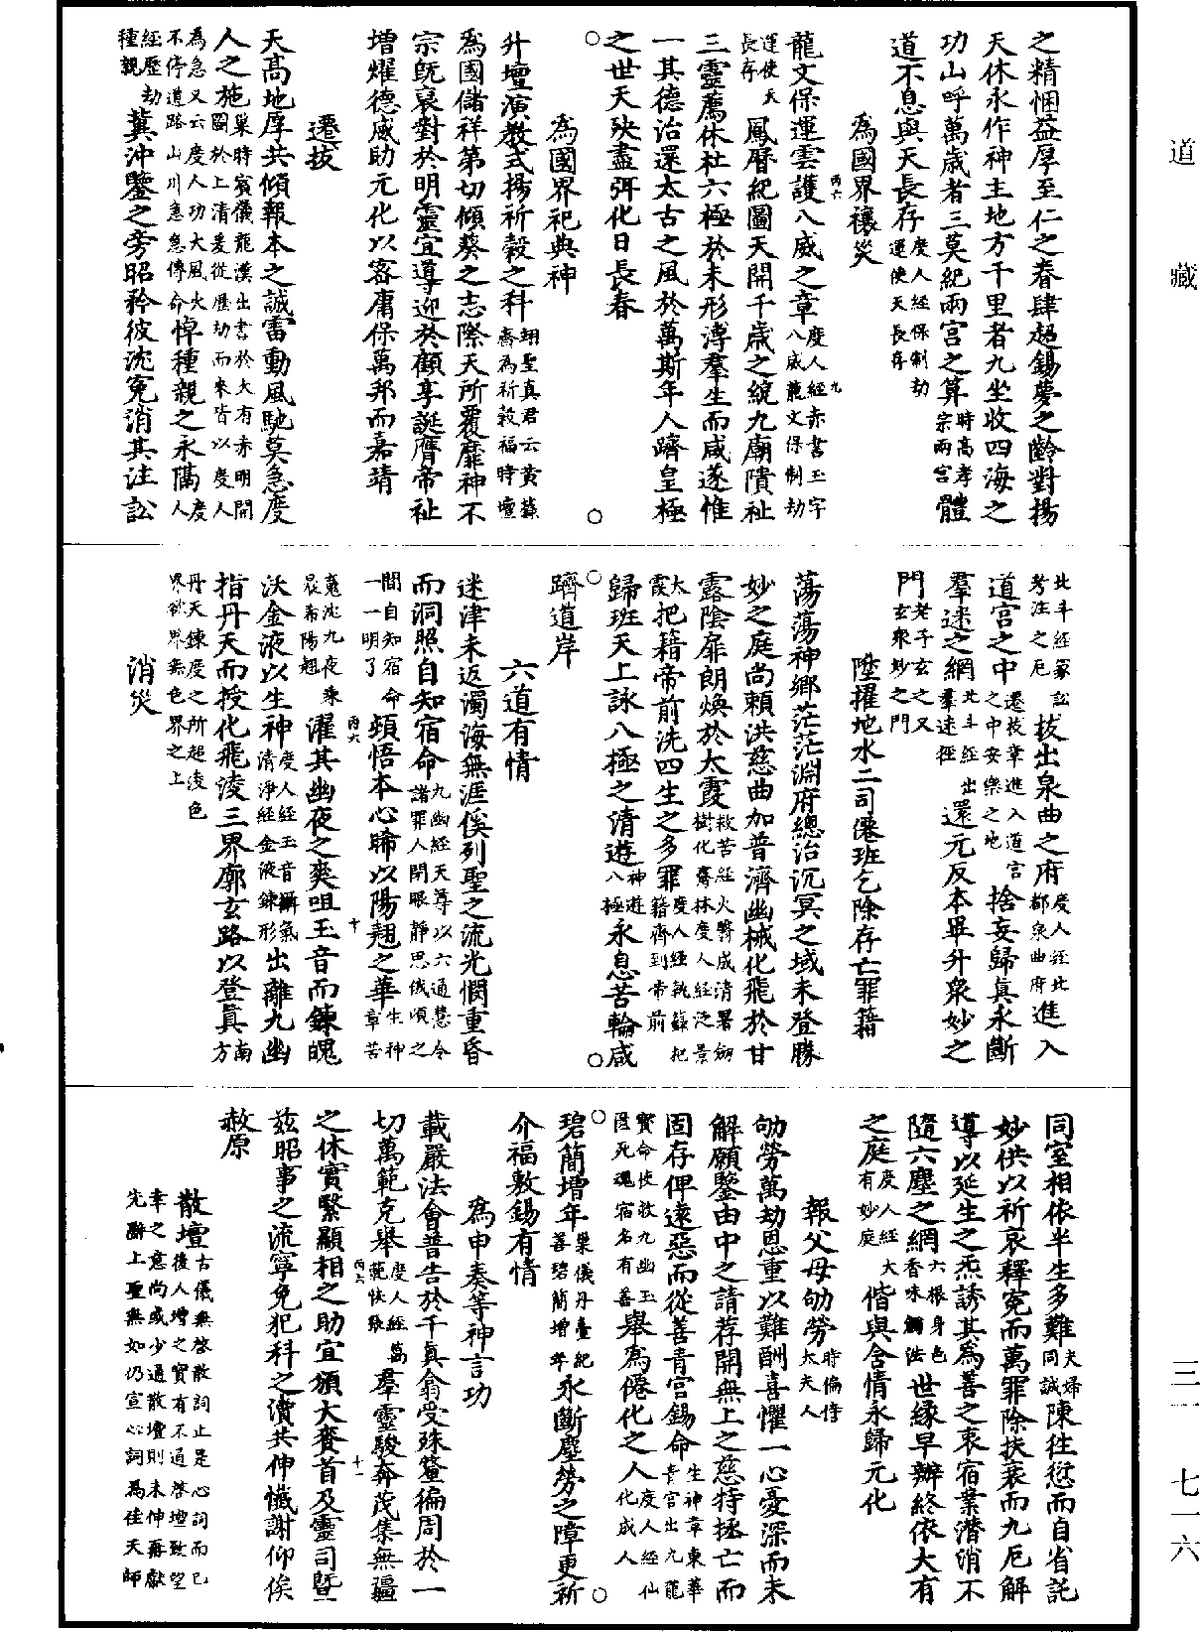 之精悃益厚至仁之眷肆超錫夢之齡對揚
天休永作神主地方千里者九坐收四海之
功山呼萬歲者三莫紀兩宮之算時高孝宗兩宮體
道不息與天長存度人經保制劫運使天長存
為國界禳災
龍文保運雲護八威之章度人經赤書玉字八威龍文保制劫
運使天長存鳳曆紀圖天開千歲之統九廟隤祉
三靈薦休杜六極於未形溥羣生而咸遂惟
一其德治還太古之風於萬斯年人躋皇極
之世天殃盡弭化日長春
為國界祀典神
升壇演教式揚祈穀之科翊聖真君云黃籙齋為祈穀福時壇
為國儲祥第切傾葵之志際天所覆靡神不
宗既裒對於明靈宜導迎於顧享誕膺帝祉
增燿德威助元化以客庸保萬邦而嘉靖
遷拔
天高地厚共傾報本之誠雷動風馳莫急度
人之施巢時賓儀龍漢出書於大有赤明開圖於上清爰從歷劫而來皆以度人
為急又云度人功大風火不停道路山川急急傳命悼種親之永隔人度
經歷劫種親冀沖鑒之旁昭矜彼沈冤消其注訟
北斗經篆訟考注之厄拔出泉曲之府度人經北都泉曲府進入
道宮之中遷拔章進入道宮之中安樂之地捨妄歸真永斷
羣迷之網北斗經出羣迷徑還元反本畢升衆妙之
門老子玄之又玄衆妙之門
陞擢地水二司僊班乞除存亡罪籍
蕩蕩神鄉茫茫淵府總治沉冥之域未登勝
妙之庭尚賴洪慈曲加普濟幽械化飛於甘
露陰扉朗煥於太霞救苦經火翳成清暑劍樹化騫林度人經泛景
太霞把籍帝前洗四生之多罪度人經執籙把籍齊到帝前
歸班天上詠八極之清遊神遊八極永息苦輪咸
躋道岸
六道有情
迷津未返濁海無涯傒列聖之流光憫重昏
而洞照自知宿命九幽經天尊以六通慧令諸罪人開眼靜思俄頃之
間自知宿命一一明了頓悟本心晞以陽翹之華生神章苦
魂沈九夜乘晨希陽翹濯其幽夜之爽咀玉音而鍊魄
沃金液以生神度人經玉音攝氣清淨經金液鍊形出離九幽
指丹天而授化飛淩三界廓玄路以登真南方
丹天鍊度之所超淩色界欲界無色界之上
消災
同室相依半生多難夫婦同誠陳往愆而自省託
妙供以祈哀釋冤而萬罪除扶衰而九厄解
導以延生之炁誘其為善之衷宿業潛消不
隨六塵之網六根身色香味觸法世緣早辦終依大有
之庭度人經大有妙庭偕與含情永歸元化
報父母劬勞時偏侍太夫人
劬勞萬劫恩重以難酬喜懼一心憂深而未
解願鑒由中之請荐開無上之慈特拯亡而
固存俾遠惡而從善青宮錫命生神章東華青宮出九龍
寶命使救九幽玉匱死魂宿名有善舉為僊化之人度人經仙化成人
碧簡增年巢儀丹臺紀善碧簡增年永斷塵勞之障更祈
介福敷錫有情
為申奏等神言功
載嚴法會普告於千真翕受殊釐徧周於一
切萬範克舉度人經萬範快張羣靈駿奔茂集無疆
之休實繄顯相之助宜頒大賚首及靈司暨
茲昭事之流寧免犯科之瀆共伸懺謝仰俟
赦原
散壇古儀無啓散詞止是心詞而已後人增之實有不通啓壇致望
幸之意尚或少通散壇則未伸再獻先辭上聖無如仍宣心詞為佳天師
道藏
三一 七一六